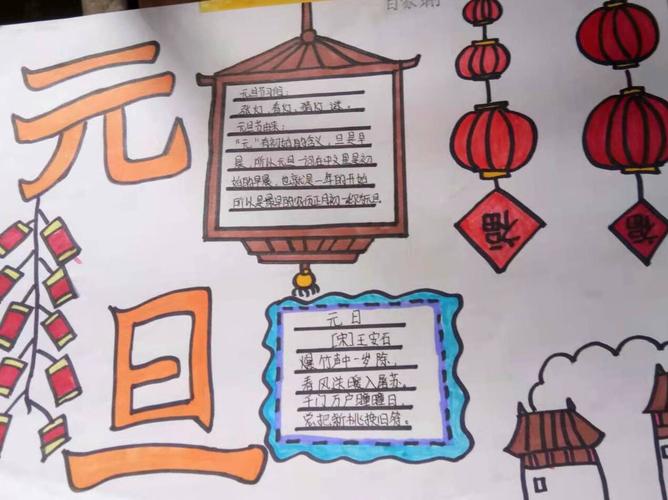 元
旦
元旦节习俗:
张灯、看灯、猜灯谜。
元旦节由来:
"元"有初始的含义,旦是早
晨,所以元旦一词在中文里是初
始的早晨,也就是一年的开始
所以是最早的农历正月初一
福
福
元日
[宋]王安石
爆竹声中一岁除,
春风送暖入屠苏,
千门万户曈曈日,
总把新桃换旧符。